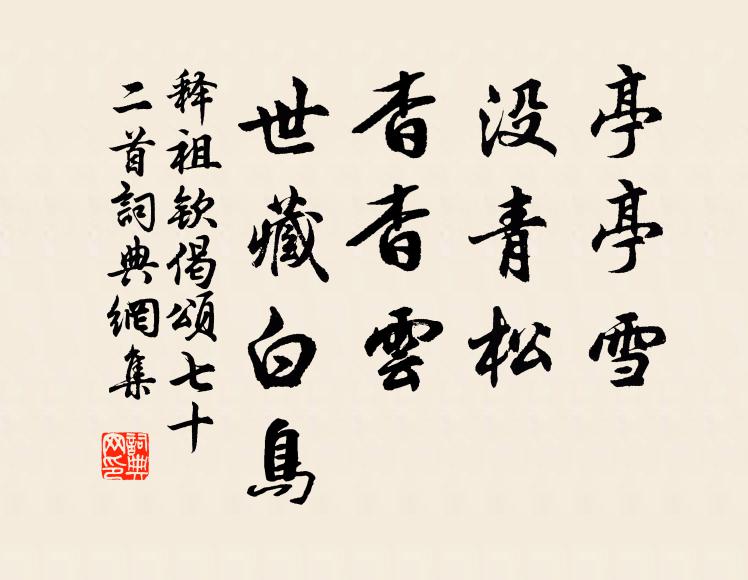 亭亭雪
没青松
杳杳雲
世藏白鳥
释祖钦偈頌七十
二首詞典網集
詞典
网印